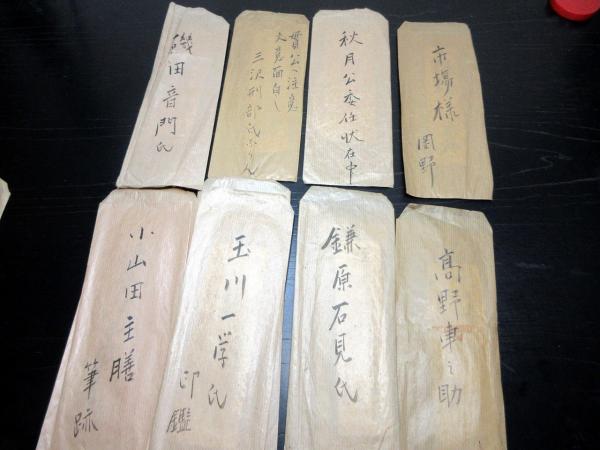 市場様
岡野
秋月公委任状在中
貫公へ注意
大変面白し
三沢刑部氏ふりん
磯田音門氏
高野車之助
鎌原石見氏
玉川一学氏
印鑑
小山田主膳
筆跡